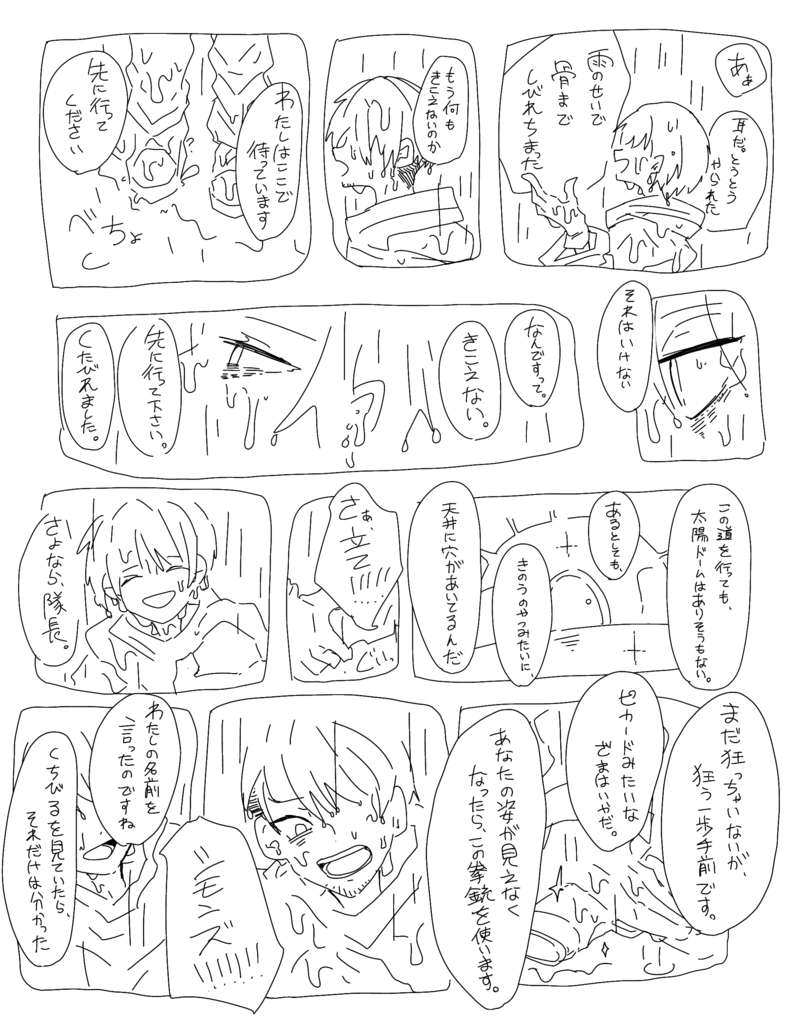 あぁ
耳だ。とうとう
やられた
雨のせいで
骨まで
しびれちまった
もう何も
きこえないのか
わたしはここで
待っています
先に行って
ください
べちょ
それはいけない
なんですって。
きこえない。
先に行って下さい。
くたびれました。
この道を行っても、
太陽ドームはありそうもない。
あるとしても、
きのうのやつみたいに、
天井に穴があいてるんだ
さぁ、立て!!!!!
さよなら、隊長。
まだ狂っちゃいないが、
狂う一歩手前です。
ピカードみたいな
ざまはいやだ。
あなたの姿が見えなく
なったら、この拳銃を使います。
シモンズ!!!!!!
わたしの名前を
言ったのですね
くちびるを見ていたら、
それだけは分かった